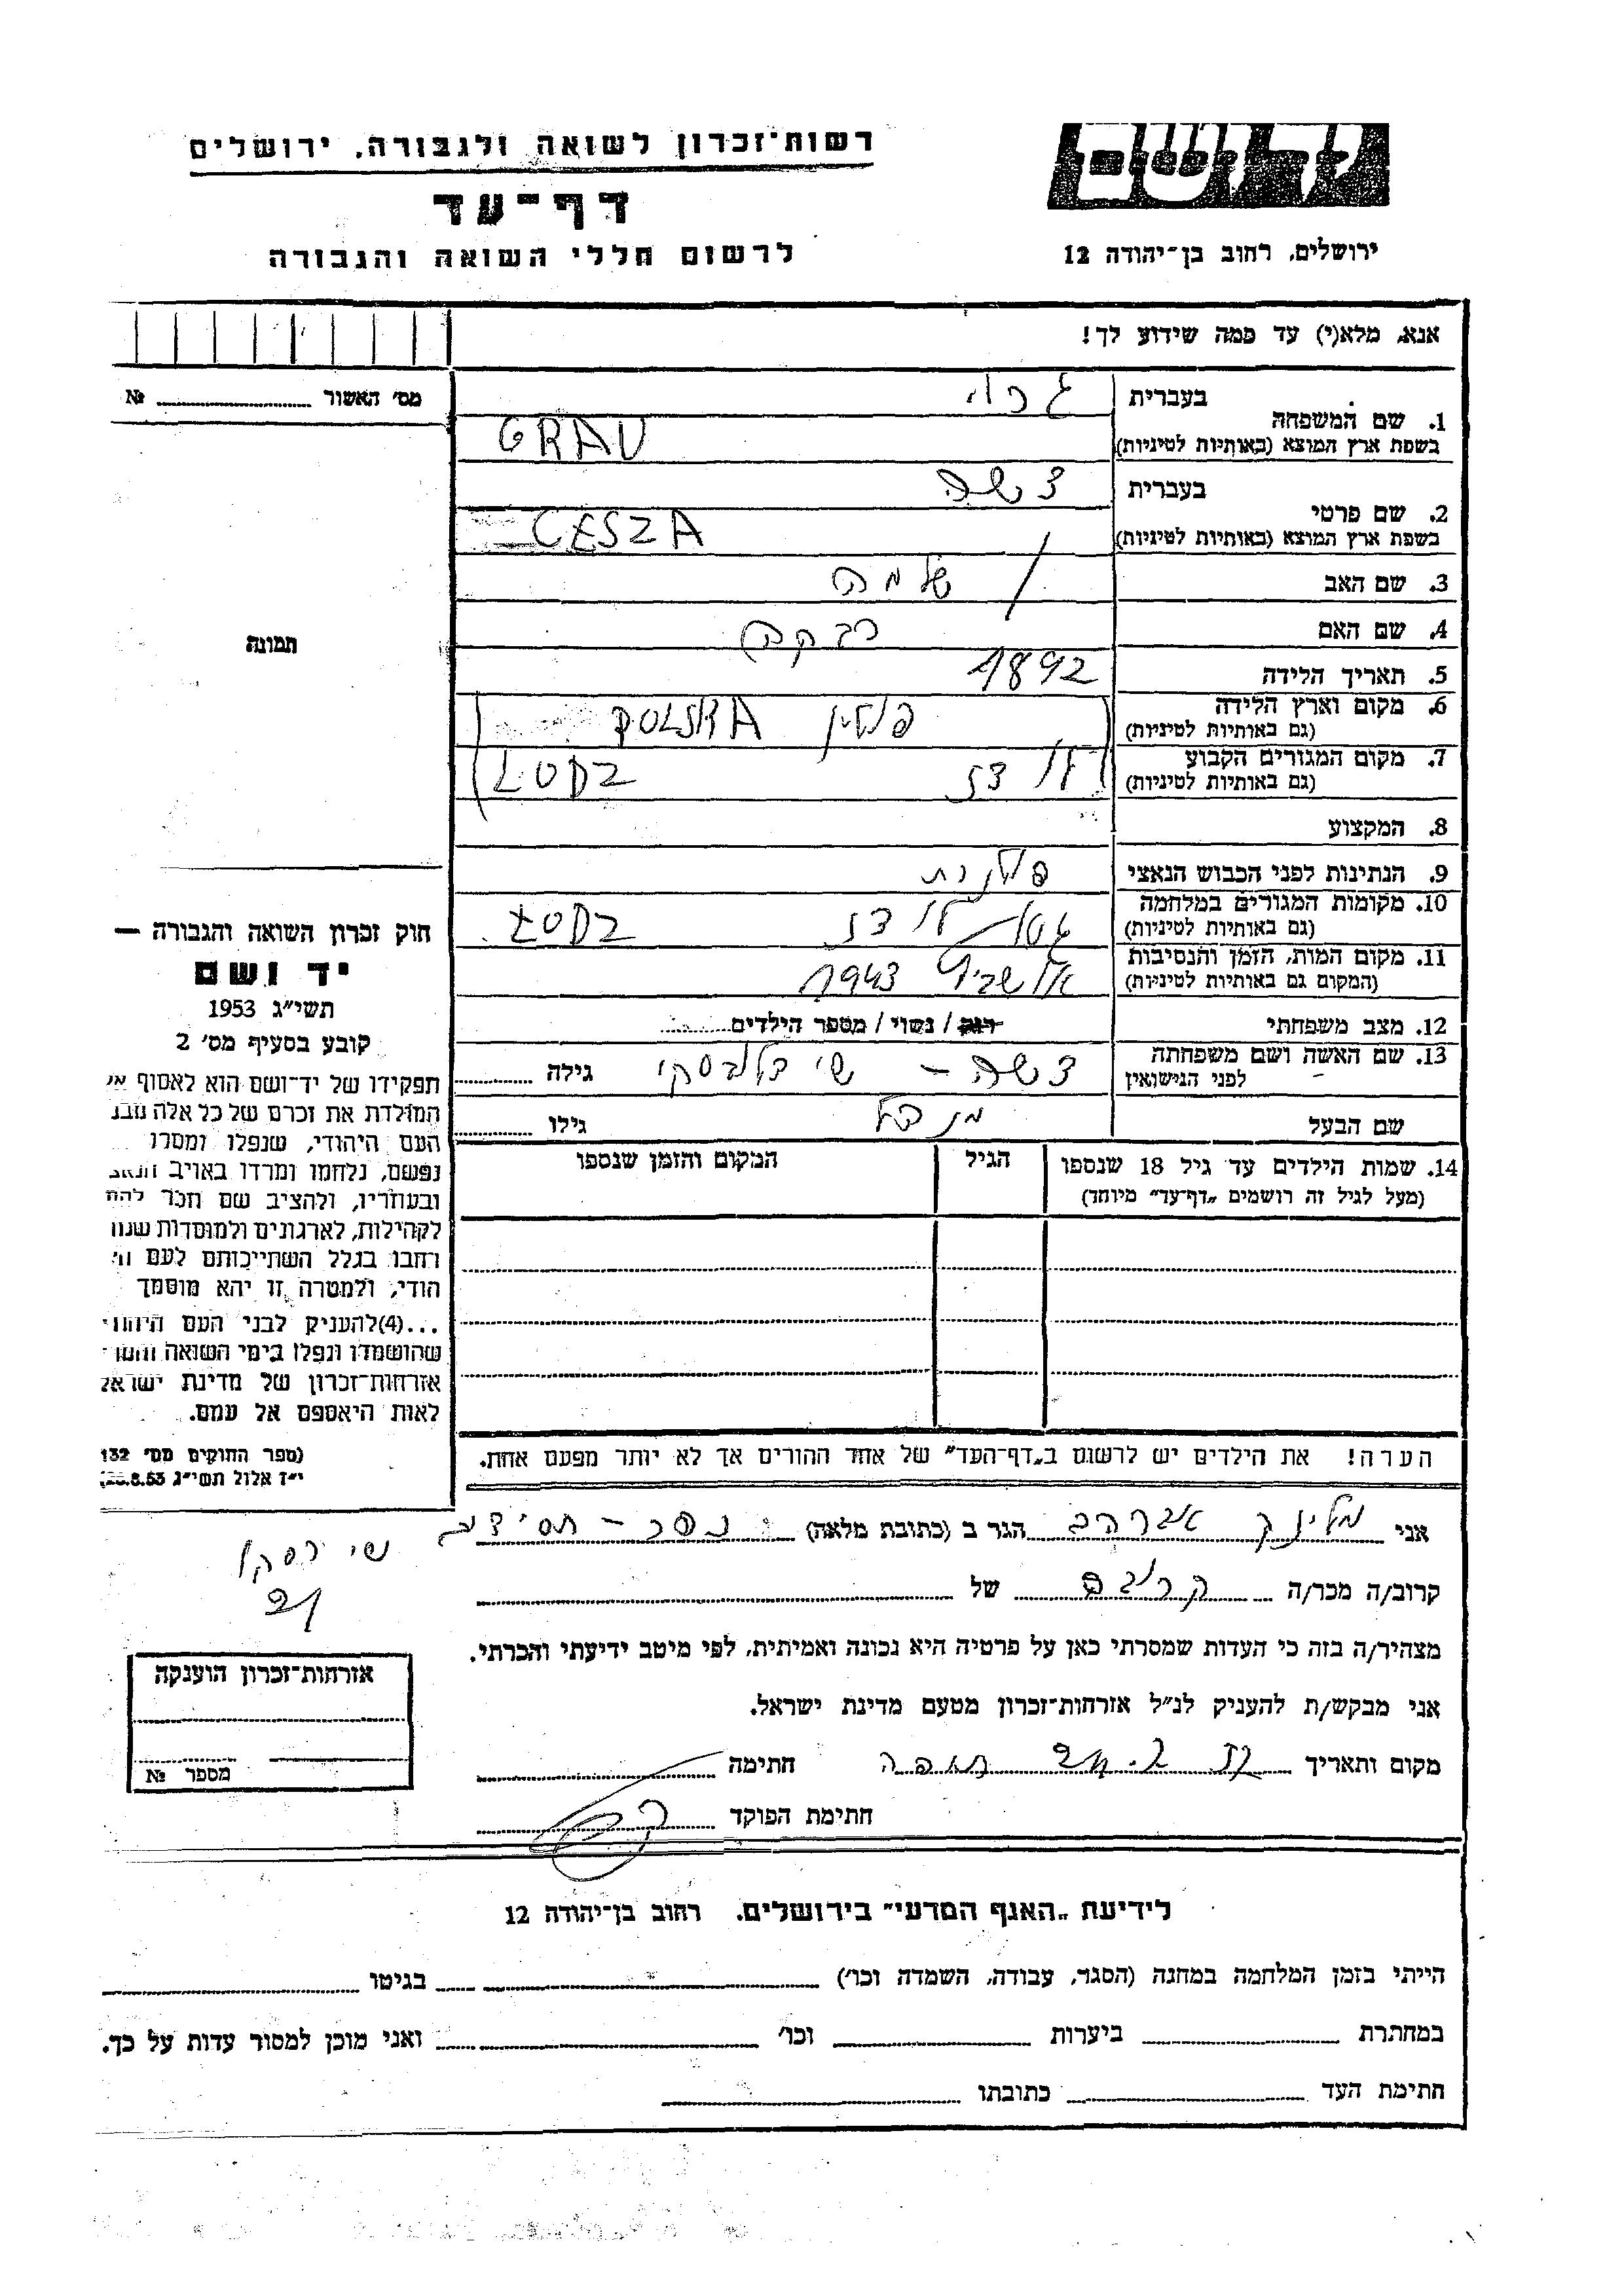 רשות־זכרון לשואה ולגבורה, ירושלים
יד ושם
דף־עד
לרשום חללי השואה והגבורה
ירושלים, רחוב בן־יהודה 12
אנא, מלא(י) עד כמה שידוע לך!
מס׳ האשור № 
1. שם המשפחה
בעברית
בשפת ארץ המוצא (באותיות לטיניות) GRAU
2. שם פרטי
בעברית צשה
בשפת ארץ המוצא (באותיות לטיניות) CESZA
3. שם האב שלמה
4. שם האם רבקה
5. תאריך הלידה 1892
6. מקום וארץ הלידה
(גם באותיות לטיניות) פולין POLSKA
7. מקום המגורים הקבוע
(גם באותיות לטיניות) לודז LODZ
8. המקצוע
9. הנתינות לפני הכבוש הנאצי פולנית
10. מקומות המגורים במלחמה
(גם באותיות לטיניות) גטו – לודז LODZ
11. מקום המות, הזמן והנסיבות
(המקום גם באותיות לטיניות) אושביץ 1943
12. מצב משפחתי רווק / נשוי / מספר הילדים
13. שם האשה ושם משפחתה
לפני הנישואין צשה – גילה
שם הבעל גילו
14. שמות הילדים עד גיל 18 שנספו
(מעל לגיל זה רושמים „דף־עד״ מיוחד)
הגיל
המקום והזמן שנספו
הערה! את הילדים יש לרשום ב„דף־העד״ של אחד ההורים אך לא יותר מפעם אחת.
תמונה
חוק זכרון השואה והגבורה —
יד ושם
תשי״ג 1953
קובע בסעיף מס׳ 2
תפקידו של יד־ושם הוא לאסוף
המולדת את זכרם של כל אלה
העם היהודי, שנפלו ומסרו
נפשם, נלחמו ומרדו באויב
ובעוזריו, ולהציב שם וזכר
לקהילות, לארגונים ולמוסדות
בגלל השתייכותם לעם
הודי, ולמטרה זו יהא מוסמך
...(4)להעניק לבני העם
שהושמדו ונפלו בימי השואה
אזרחות־זכרון של מדינת
לאות היאספם אל עמם.
(ספר החוקים מס׳ 132
י״ז אלול תשי״ג
אני אברהם הגר ב (כתובת מלאה)
קרוב/ה מכר/ה קרובה של
מצהיר/ה בזה כי העדות שמסרתי כאן על פרטיה היא נכונה ואמיתית, לפי מיטב ידיעתי והכרתי.
אני מבקש/ת להעניק לנ״ל אזרחות־זכרון מטעם מדינת ישראל.
מקום ותאריך חתימה
חתימת הפוקד
אזרחות־זכרון הוענקה
מספר №
לידיעת „האגף המדעי״ בירושלים, רחוב בן־יהודה 12
הייתי בזמן המלחמה במחנה (הסגר, עבודה, השמדה וכו׳) בגיטו
במחתרת ביערות וכו׳ ואני מוכן למסור עדות על כך.
חתימת העד כתובתו